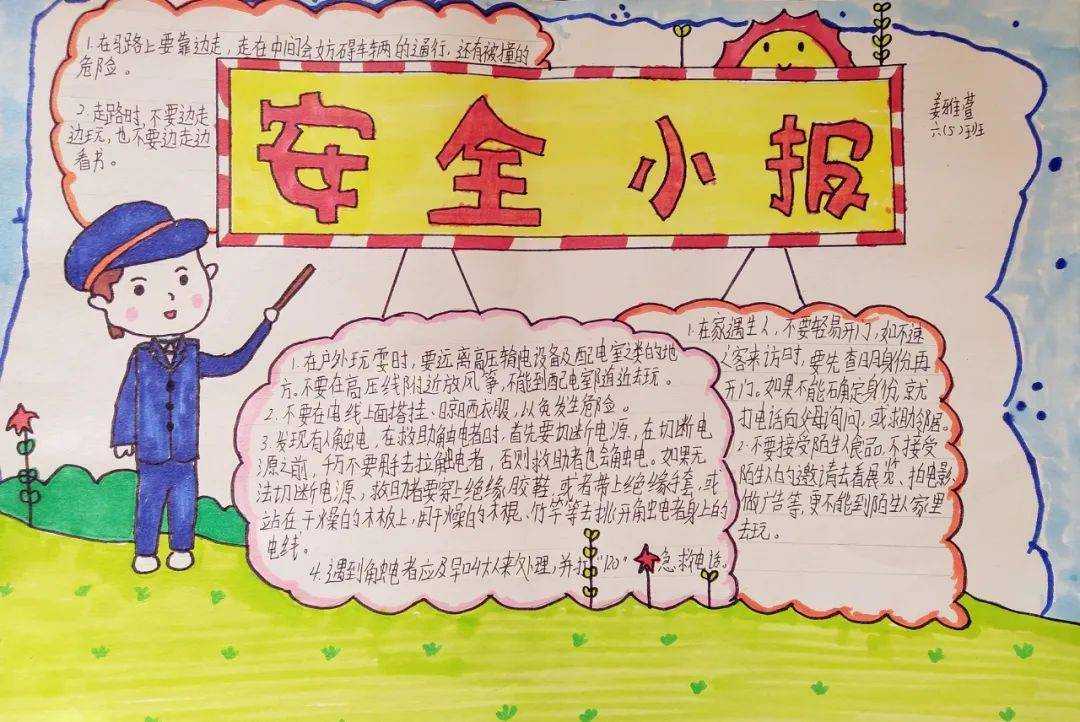 1.在马路上要靠边走,走在中间会妨碍车辆的通行,还有被撞的
危险。
2.走路时,不要边走
边玩,也不要边走边
看书。
安全小报
姜雅萱
六(5)班
1.在户外玩耍时,要远离高压输电设备及配电室之类的地
方。不要在高压线附近放风筝,不能到配电室附近去玩。
2.不要在电线上面搭挂、晾晒衣服,以免发生危险。
3.发现有人触电,在救助触电者时,首先要切断电源,在切断电
源之前,千万不要用手去拉触电者,否则救助者也会触电。如果无
法切断电源,救助者要穿上绝缘胶鞋,或者带上绝缘手套,或
站在干燥的木板上,用干燥的木棍、竹竿等去挑开触电者身上的
电线。
4.遇到触电者应及早叫大人来处理,并打“120”急求电话。
1.在家遇生人,不要轻易开门,如不速
之客来访时,要先查明身份再
开门。如果不能确定身份,就
打电话向父母询问,或求助邻居。
2.不要接受陌生人食品,不接受
陌生人的邀请去看展览、拍电影、
做广告等,更不能到陌生人家里
去玩。